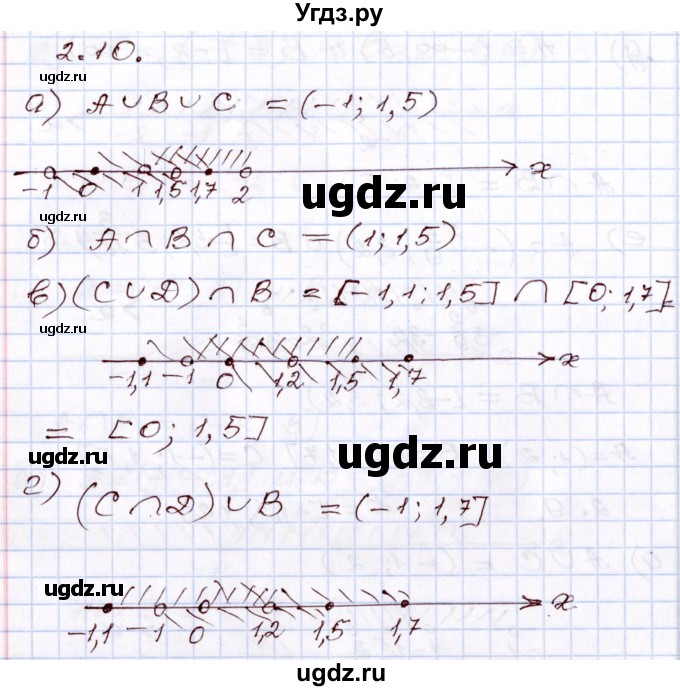 Угдз.ру
2.10.
а) A ∪ B ∪ C = (-1; 1,5)
-1 0 1 1,5 1,7 2 x
ugdz.ru
ugdz.ru
б) A ∩ B ∩ C = (1; 1,5)
ugdz.ru
в) (C ∪ D) ∩ B = [-1,1; 1,5] ∩ [0; 1,7] =
ugdz.ru
-1,1 -1 0 1,2 1,5 1,7 x
= [0; 1,5]
ugdz.ru
ugdz.ru
г) (C ∩ D) ∪ B = (-1; 1,7]
ugdz.ru
ugdz.ru
-1,1 -1 0 1,2 1,5 1,7 x
ugdz.ru